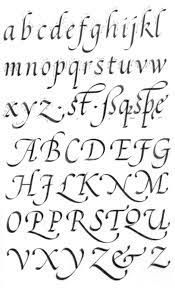 abcdefghijkl
mnopqrstuvw
xyz·st·ßqsþe
ABCDEFG
HIJKLNM
OPPRSTQU
VXYZ&Z